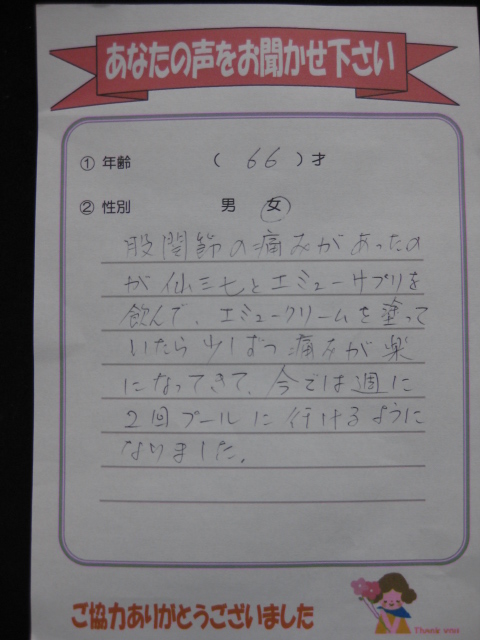 あなたの声をお聞かせ下さい
① 年齢 （ 66 ）才
② 性別 男 女
股関節の痛みがあったの
が仙三七とエミューサプリを
飲んで、エミュークリームを塗って
いたら少しずつ痛みが楽
になってきて、今では週に
2回プールに行けるように
なりました。
ご協力ありがとうございました
Thank you